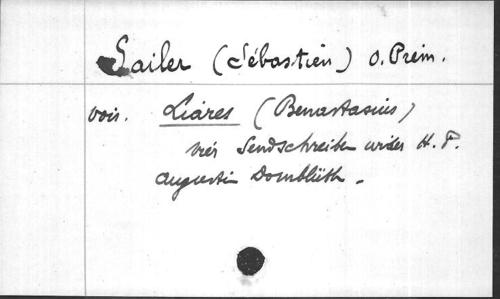 Sailer (Sébastien) O. Prém.
voir. Liares (Benastasius)
vier Sendschreiben wider H. P.
Augustin Dornblüth.